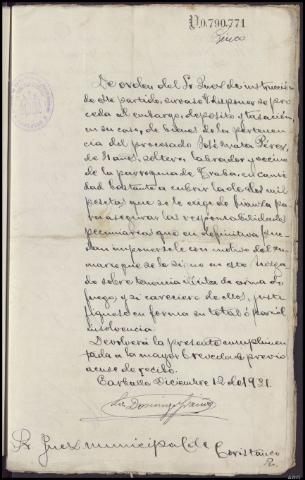 P.0.790.771
De orden del Sr Juez de instrucción
de este partido, sírvase V disponer se pro
ceda al embargo, depósito y tasación,
en su caso, de bienes de la pertenencia
del procesado José Maria Pérez,
de años, soltero, labrador y vecino
de la parroquia de Traba, en canti
dad bastante a cubrir la de dos mil
pesetas que se le exige de fianza pa
ra asegurar las responsabilidades
pecuniarias que en definitiva pue
dan imponersele con motivo del su
mario que se le sigue en este Juzga
do sobre tenencia ilícita de arma de
fuego, y si careciere de ellos, justi
fiquese en forma su total ó parcial
insolvencia.
Devolverá la presente cumplimen
tada a la mayor brevedad previo
acuse de recibo.
Carballo Diciembre 12 de 1931.
Sr Juez municipal de Coristanco